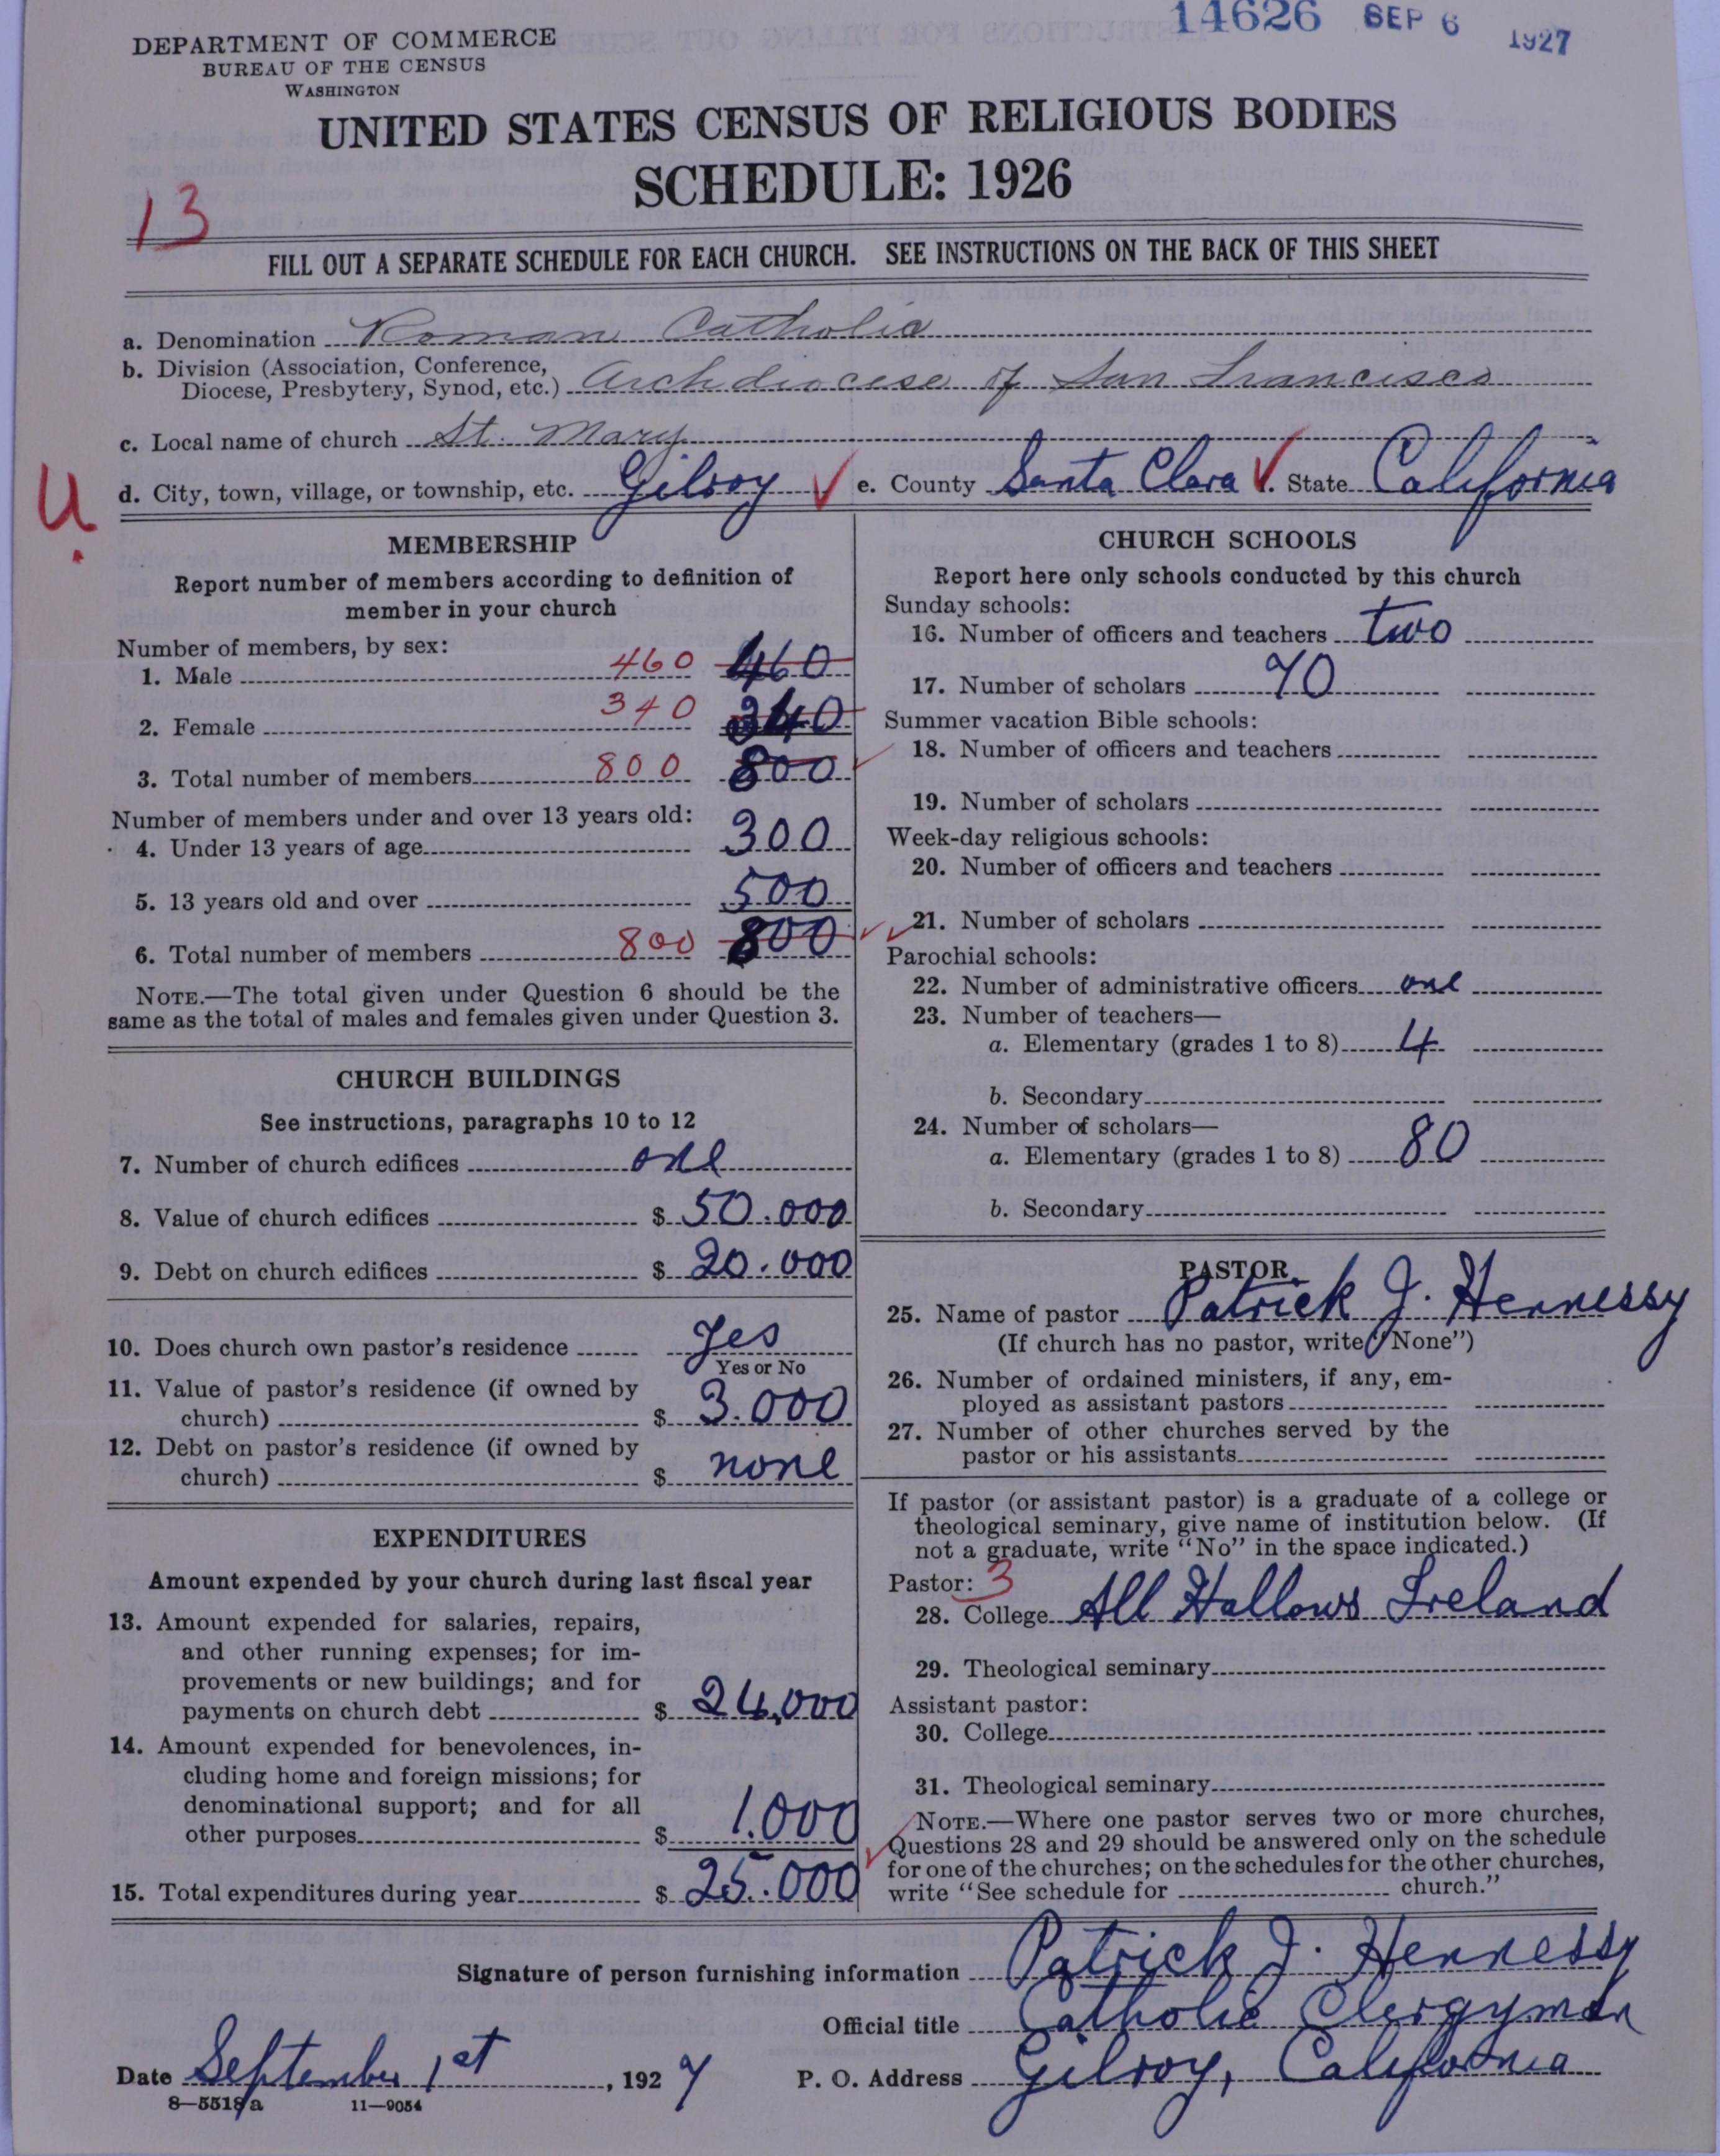 14626 SEP 6 1927
DEPARTMENT OF COMMERCE
BUREAU OF THE CENSUS
WASHINGTON
UNITED STATES CENSUS OF RELIGIOUS BODIES
SCHEDULE: 1926
13
FILL OUT A SEPARATE SCHEDULE FOR EACH CHURCH. SEE INSTRUCTIONS ON THE BACK OF THIS SHEET
a. Denomination Roman Catholic
b. Division (Association, Conference,
Diocese, Presbytery, Synod, etc.) Archdiocese of San Francisco
c. Local name of church St. Mary
U.
d. City, town, village, or township, etc. Gilroy ✓ e. County Santa Clara ✓ f. State California
MEMBERSHIP
Report number of members according to definition of
member in your church
Number of members, by sex:
1. Male 460 460
2. Female 340 340
3. Total number of members 800 800
Number of members under and over 13 years old:
4. Under 13 years of age 300
5. 13 years old and over 500
6. Total number of members 800 800
NOTE.—The total given under Question 6 should be the
same as the total of males and females given under Question 3.
CHURCH BUILDINGS
See instructions, paragraphs 10 to 12
7. Number of church edifices one
8. Value of church edifices $ 50.000
9. Debt on church edifices $ 20.000
10. Does church own pastor's residence Yes
Yes or No
11. Value of pastor's residence (if owned by
church) $ 3.000
12. Debt on pastor's residence (if owned by
church) $ none
EXPENDITURES
Amount expended by your church during last fiscal year
13. Amount expended for salaries, repairs,
and other running expenses; for im-
provements or new buildings; and for
payments on church debt $ 24,000
14. Amount expended for benevolences, in-
cluding home and foreign missions; for
denominational support; and for all
other purposes $ 1.000
15. Total expenditures during year $ 25.000
CHURCH SCHOOLS
Report here only schools conducted by this church
Sunday schools:
16. Number of officers and teachers two
17. Number of scholars 70
Summer vacation Bible schools:
18. Number of officers and teachers
19. Number of scholars
Week-day religious schools:
20. Number of officers and teachers
21. Number of scholars
Parochial schools:
22. Number of administrative officers one
23. Number of teachers—
a. Elementary (grades 1 to 8) 4
b. Secondary
24. Number of scholars—
a. Elementary (grades 1 to 8) 80
b. Secondary
PASTOR
25. Name of pastor Patrick J. Hennessy
(If church has no pastor, write "None")
26. Number of ordained ministers, if any, em-
ployed as assistant pastors
27. Number of other churches served by the
pastor or his assistants
If pastor (or assistant pastor) is a graduate of a college or
theological seminary, give name of institution below. (If
not a graduate, write "No" in the space indicated.)
Pastor: 3
28. College All Hallows Ireland
29. Theological seminary
Assistant pastor:
30. College
31. Theological seminary
NOTE.—Where one pastor serves two or more churches,
Questions 28 and 29 should be answered only on the schedule
for one of the churches; on the schedules for the other churches,
write "See schedule for church."
Signature of person furnishing information Patrick J. Hennessy
Official title Catholic Clergyman
Date September 1st, 1927 P. O. Address Gilroy, California
8—5518 a 11—9054